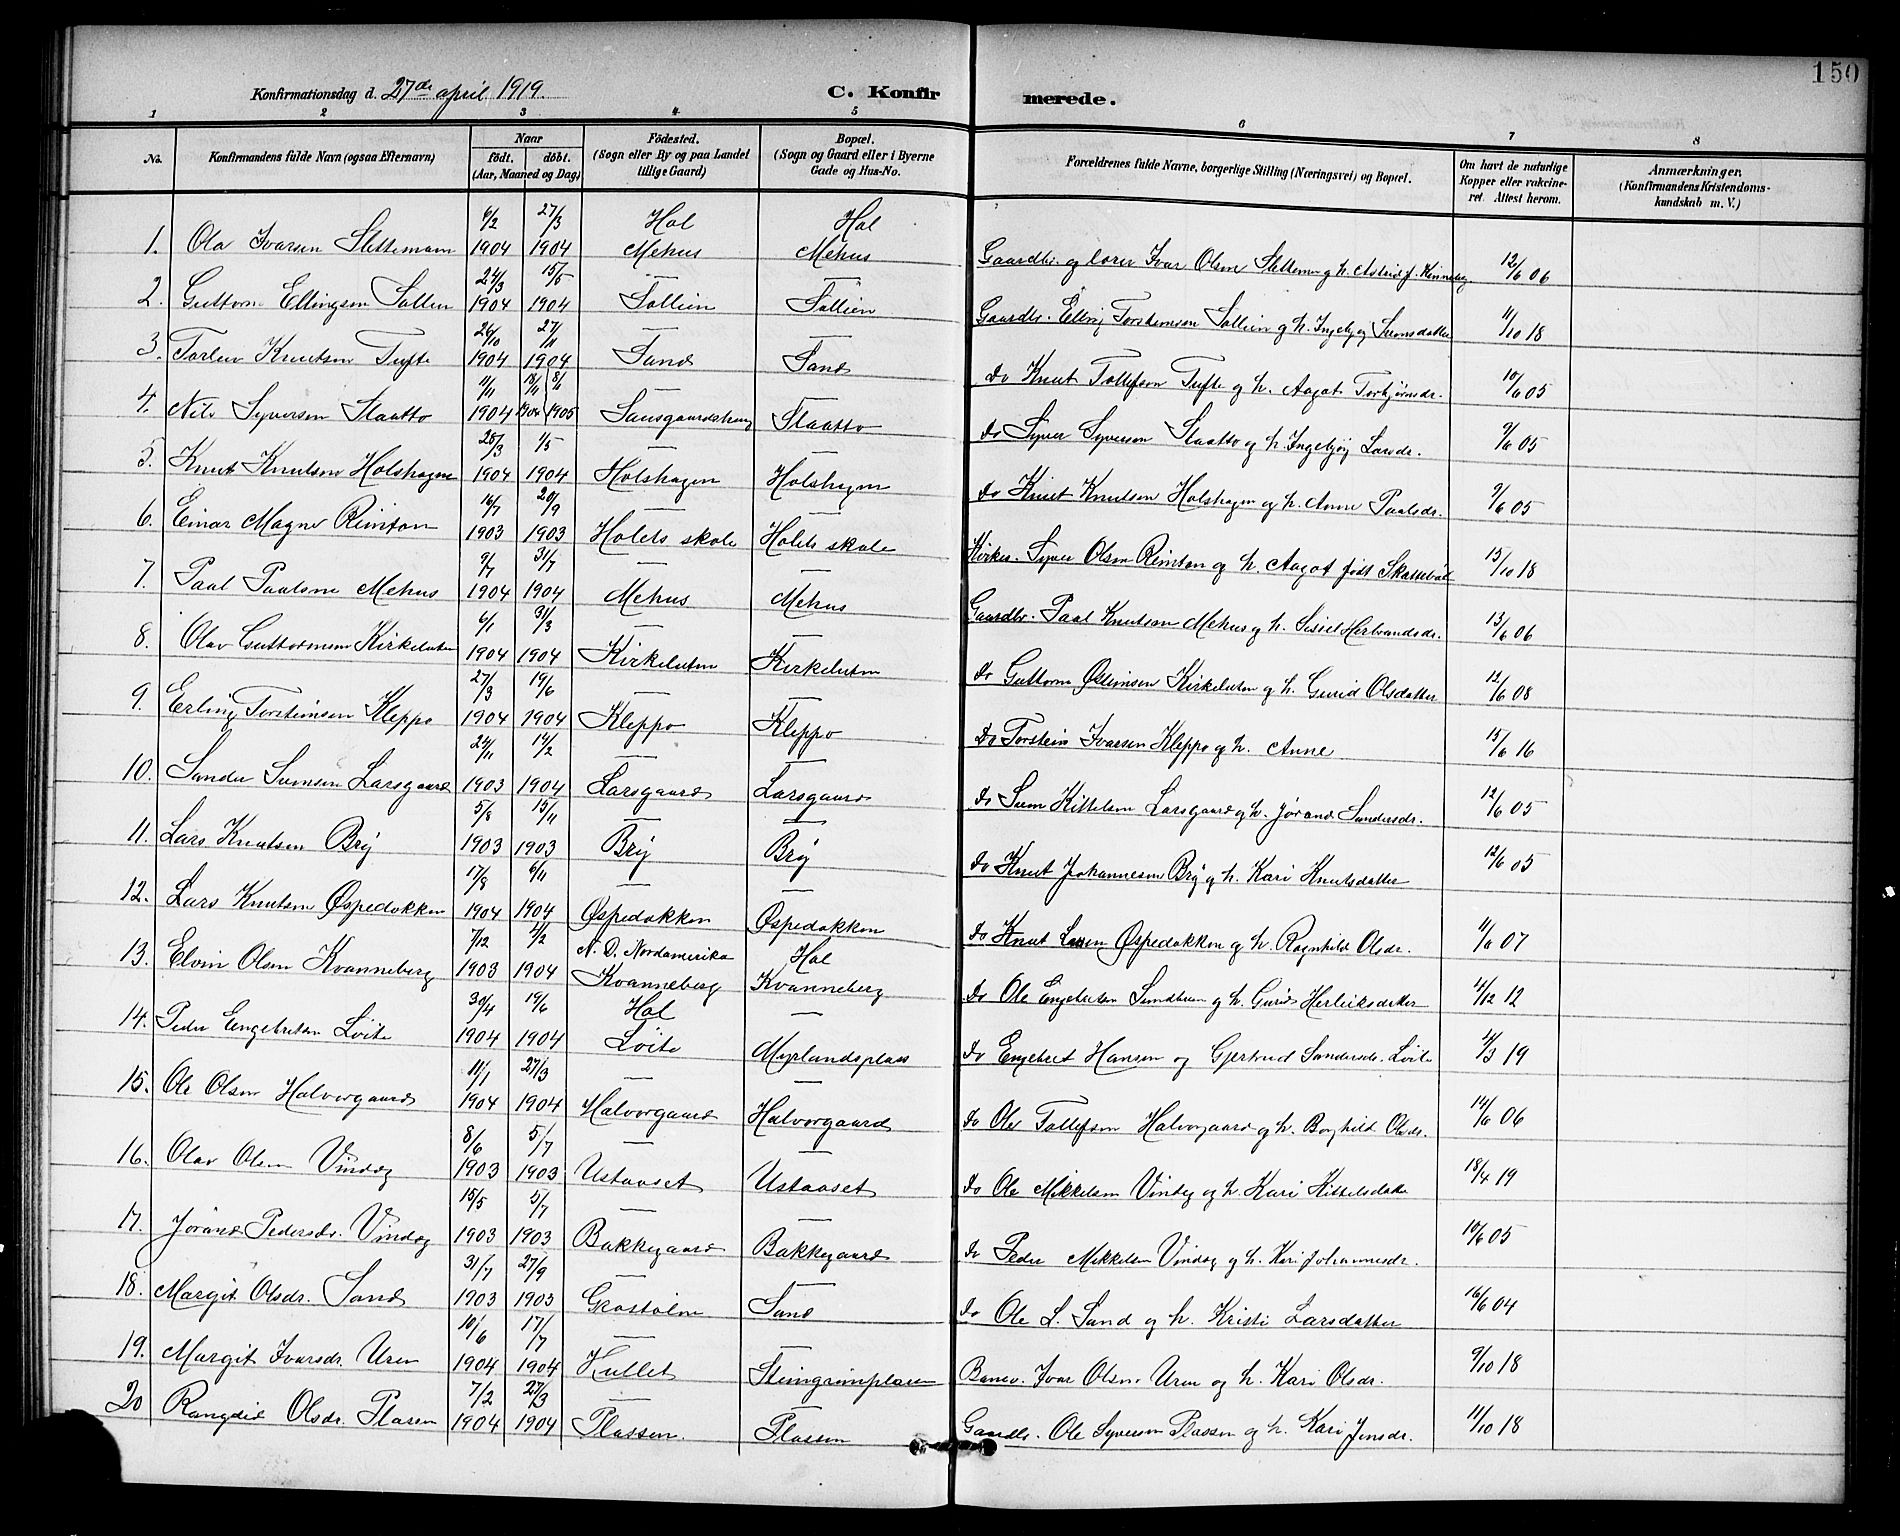 150
Konfirmationsdag d. 27de april 1919.
C. Konfirmerede.
1 2 3 4 5 6 7 8
No.
Konfirmandens fulde Navn (ogsaa Efternavn)
Naar
födt. döbt.
(Aar, Maaned og Dag)
Födested.
(Sogn eller By og paa Landet
tillige Gaard)
Bopæl.
(Sogn og Gaard eller i Byerne
Gade og Hus-No.
Forældrenes fulde Navne, borgerlige Stilling (Næringsvei) og Bopæl.
Om havt de naturlige
Kopper eller vakcine-
ret. Attest herom.
Anmærkninger.
(Konfirmandens Kristendoms-
kundskab m. V.)
6/2 27/3 Hol Hol
1. Ola Ivarsen Slettemoen 1904 1904 Mehus Mehus Gaardbr. og lærer Ivar Olsen Slettemoen g h. Astrid f. Kvanneberg 12/6 06
24/3 15/5 — —
2. Guttorm Ellingsen Sollien 1904 1904 Sollien Sollien Gaardbr. Elling Torsteinsen Sollien g h. Ingebjørg Simonsdatter 11/10 18
26/10 27/11 — —
3. Torleiv Knutsen Tufte 1904 1904 Sand Sand do Knut Tollefsen Tufte g h. Aagot Torbjørnsdr. 10/6 05
11/11 18/11 8/11 — —
4. Nils Syversen Slaatto 1904 1904 1905 Slaatto do Syver Syversen Slaatto og h. Ingebjørg Larsdr. 9/6 05
25/3 1/5 — —
5. Knut Knutsen Holshagen 1904 1904 Holshagen Holshagen do Knut Knutsen Holshagen og h. Anne Paalsdr. 9/6 05
16/7 20/9 — —
6. Einar Magne Reinton 1903 1903 Holets skole Holets skole Kirkes. Syver Olsen Reinton og h. Aagot født Skattebøl 15/10 18
9/7 31/7 — —
7. Paal Paalsen Mehus 1904 1904 Mehus Mehus Gaardbr. Paal Knutsen Mehus g h. Sissel Herbrandsdr. 13/6 06
6/1 31/3 — —
8. Olav Guttormsen Kirkeluten 1904 1904 Kirkeluten Kirkeluten do Guttorm Østensen Kirkeluten og h. Guvid Olsdatter 12/6 08
27/3 19/6 — —
9. Erling Torsteinsen Kleppo 1904 1904 Kleppo Kleppo do Torstein Ivarsen Kleppo g h. Anne 15/6 16
24/11 14/2 — —
10. Sander Svensen Larsgaard 1903 1904 Larsgaard Larsgaard do Sven Kittelsen Larsgaard g h. Jørand Sandersdr. 12/6 05
5/8 15/11 — —
11. Lars Knutsen Brøj 1903 1903 Brøj Brøj do Knut Johannesen Brøj g h. Kari Knutsdatter 12/6 05
17/8 6/11 — —
12. Lars Knutsen Øspedokken 1904 1904 Øspedokken Øspedokken do Knut Larsen Øspedokken og h. Ragnhild Olsdr. 11/6 07
7/12 2/2 N. D. Nordamerika Hol
13. Elvin Olsen Kvanneberg 1903 1904 Kvanneberg Kvanneberg do Ole Engebretsen Sundbrein og h. Gurid Herleiksdatter 11/12 12
30/4 19/6 Hol —
14. Peder Engebretsen Løite 1904 1904 Løite Myrlandsplass do Engebret Hansen og Gjertrud Sandersdr. Løite 11/3 19
11/1 27/3 — —
15. Ole Olsen Halvorgaard 1904 1904 Halvorgaard Halvorgaard do Ole Tollefsen Halvorgaard og h. Borghild Olsdr. 14/6 06
8/6 5/7 — —
16. Olav Olsen Vindeg 1903 1903 Ustaoset Ustaoset do Ole Mikkelsen Vindeg og h. Kari Kittelsdatter 18/4 19
15/5 5/7 — —
17. Jørand Pedersdr. Vindeg 1903 1903 Bakkegaard Bakkegaard do Peder Mikkelsen Vindeg og h. Kari Johannesdr. 10/6 05
31/7 27/9 — —
18. Margit Olsdr. Sand 1903 1903 Grostølen Sand do Ole L. Sand og h. Kristi Larsdatter 16/6 04
10/6 17/7 —
19. Margit Ivarsdr. Uren 1904 1904 Hullet Steingrimplassen Banev. Ivar Olsen Uren og h. Kari Olsdr. 9/10 18
7/2 27/3 — —
20 Rangdid Olsdr. Plassen 1904 1904 Plassen. Plassen Gaardbr. Ole Syversen Plassen og h. Kari Jensdr. 11/10 18